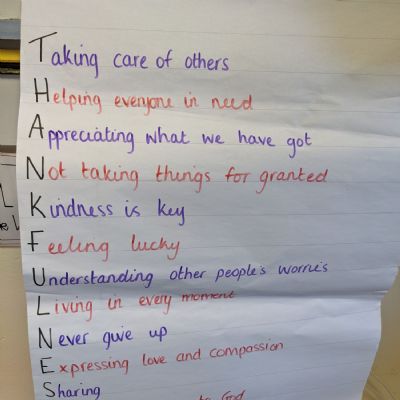 Taking care of others
Helping everyone in need
Appreciating what we have got
Not taking things for granted
Kindness is key
Feeling lucky
Understanding other people's worries
Living in every moment
Never give up
Expressing love and compassion
Sharing
to God